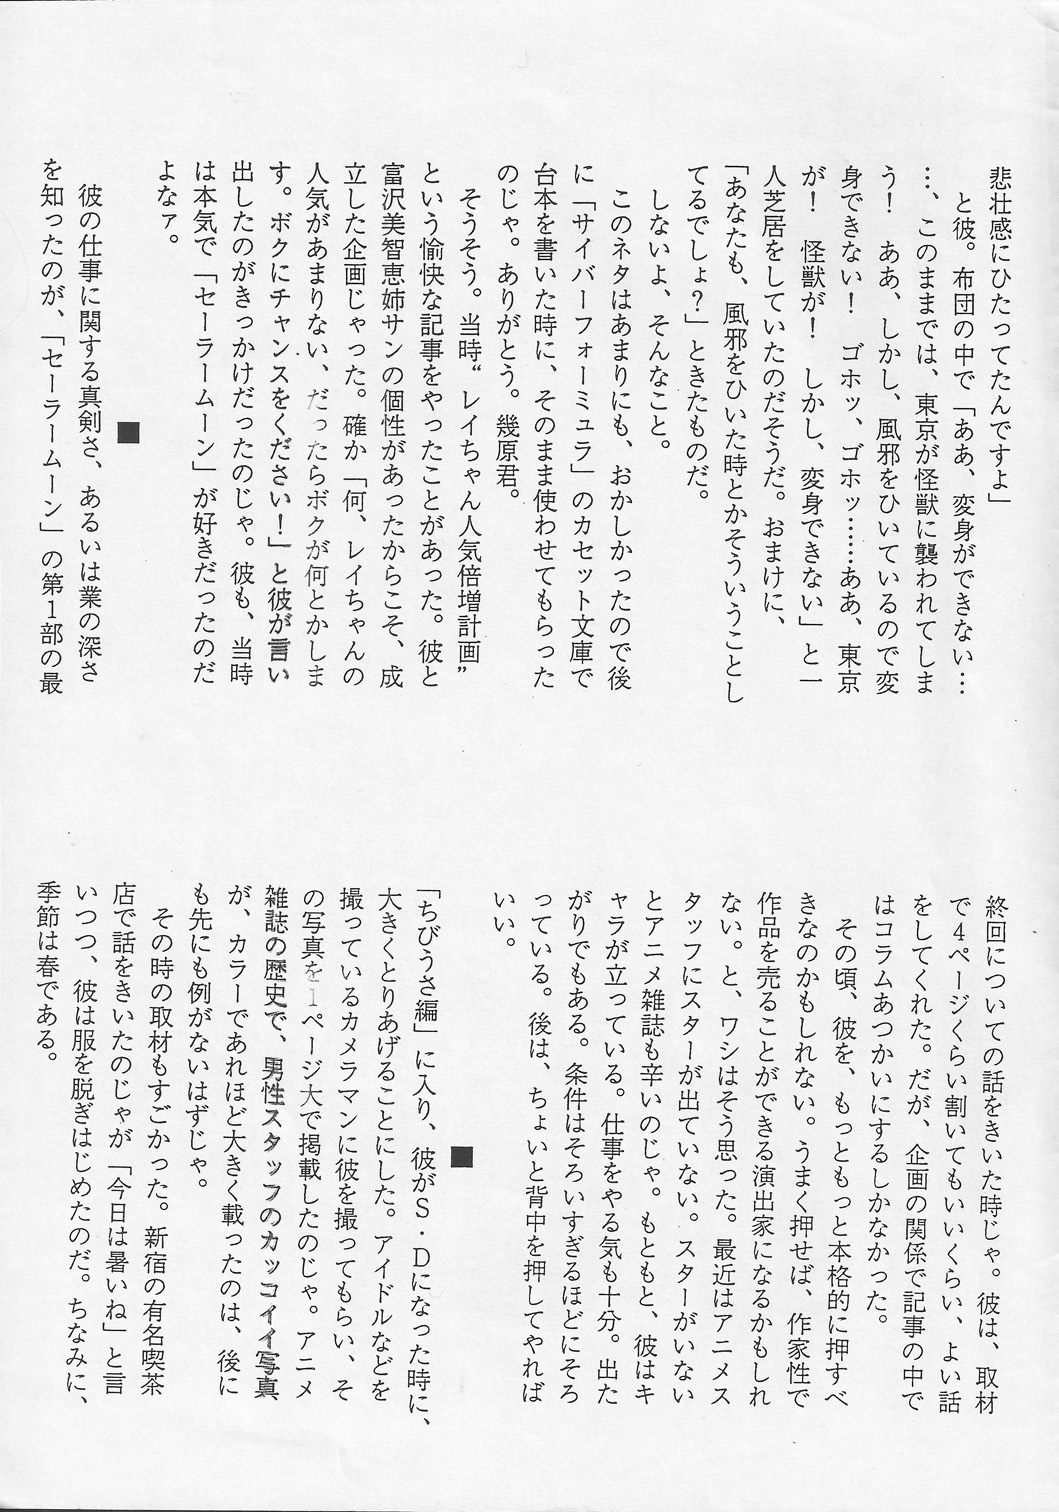 悲壮感にひたってたんですよ」
　と彼。布団の中で「ああ、変身ができない…
…、このままでは、東京が怪獣に襲われてしま
う！　ああ、しかし、風邪をひいているので変
身できない！　ゴホッ、ゴホッ……ああ、東京
が！　怪獣が！　しかし、変身できない」と一
人芝居をしていたのだそうだ。おまけに、
「あなたも、風邪をひいた時とかそういうことし
てるでしょ？」ときたものだ。
　しないよ、そんなこと。
　このネタはあまりにも、おかしかったので後
に「サイバーフォーミュラ」のカセット文庫で
台本を書いた時に、そのまま使わせてもらった
のじゃ。ありがとう。幾原君。
　そうそう。当時“レイちゃん人気倍増計画”
という愉快な記事をやったことがあった。彼と
富沢美智恵姉サンの個性があったからこそ、成
立した企画じゃった。確か「何、レイちゃんの
人気があまりない、だったらボクが何とかしま
す。ボクにチャンスをください！」と彼が言い
出したのがきっかけだったのじゃ。彼も、当時
は本気で「セーラームーン」が好きだったのだ
よなァ。
■
　彼の仕事に関する真剣さ、あるいは業の深さ
を知ったのが、「セーラームーン」の第1部の最
終回についての話をきいた時じゃ。彼は、取材
で4ページくらい割いてもいいくらい、よい話
をしてくれた。だが、企画の関係で記事の中で
はコラムあつかいにするしかなかった。
　その頃、彼を、もっともっと本格的に押すべ
きなのかもしれない。うまく押せば、作家性で
作品を売ることができる演出家になるかもしれ
ない。と、ワシはそう思った。最近はアニメス
タッフにスターが出ていない。スターがいない
とアニメ雑誌も辛いのじゃ。もともと、彼はキ
ャラが立っている。仕事をやる気も十分。出た
がりでもある。条件はそろいすぎるほどにそろ
っている。後は、ちょいと背中を押してやれば
いい。
■
「ちびうさ編」に入り、彼がS・Dになった時に、
大きくとりあげることにした。アイドルなどを
撮っているカメラマンに彼を撮ってもらい、そ
の写真を1ページ大で掲載したのじゃ。アニメ
雑誌の歴史で、男性スタッフのカッコイイ写真
が、カラーであれほど大きく載ったのは、後に
も先にも例がないはずじゃ。
　その時の取材もすごかった。新宿の有名喫茶
店で話をきいたのじゃが「今日は暑いね」と言
いつつ、彼は服を脱ぎはじめたのだ。ちなみに、
季節は春である。